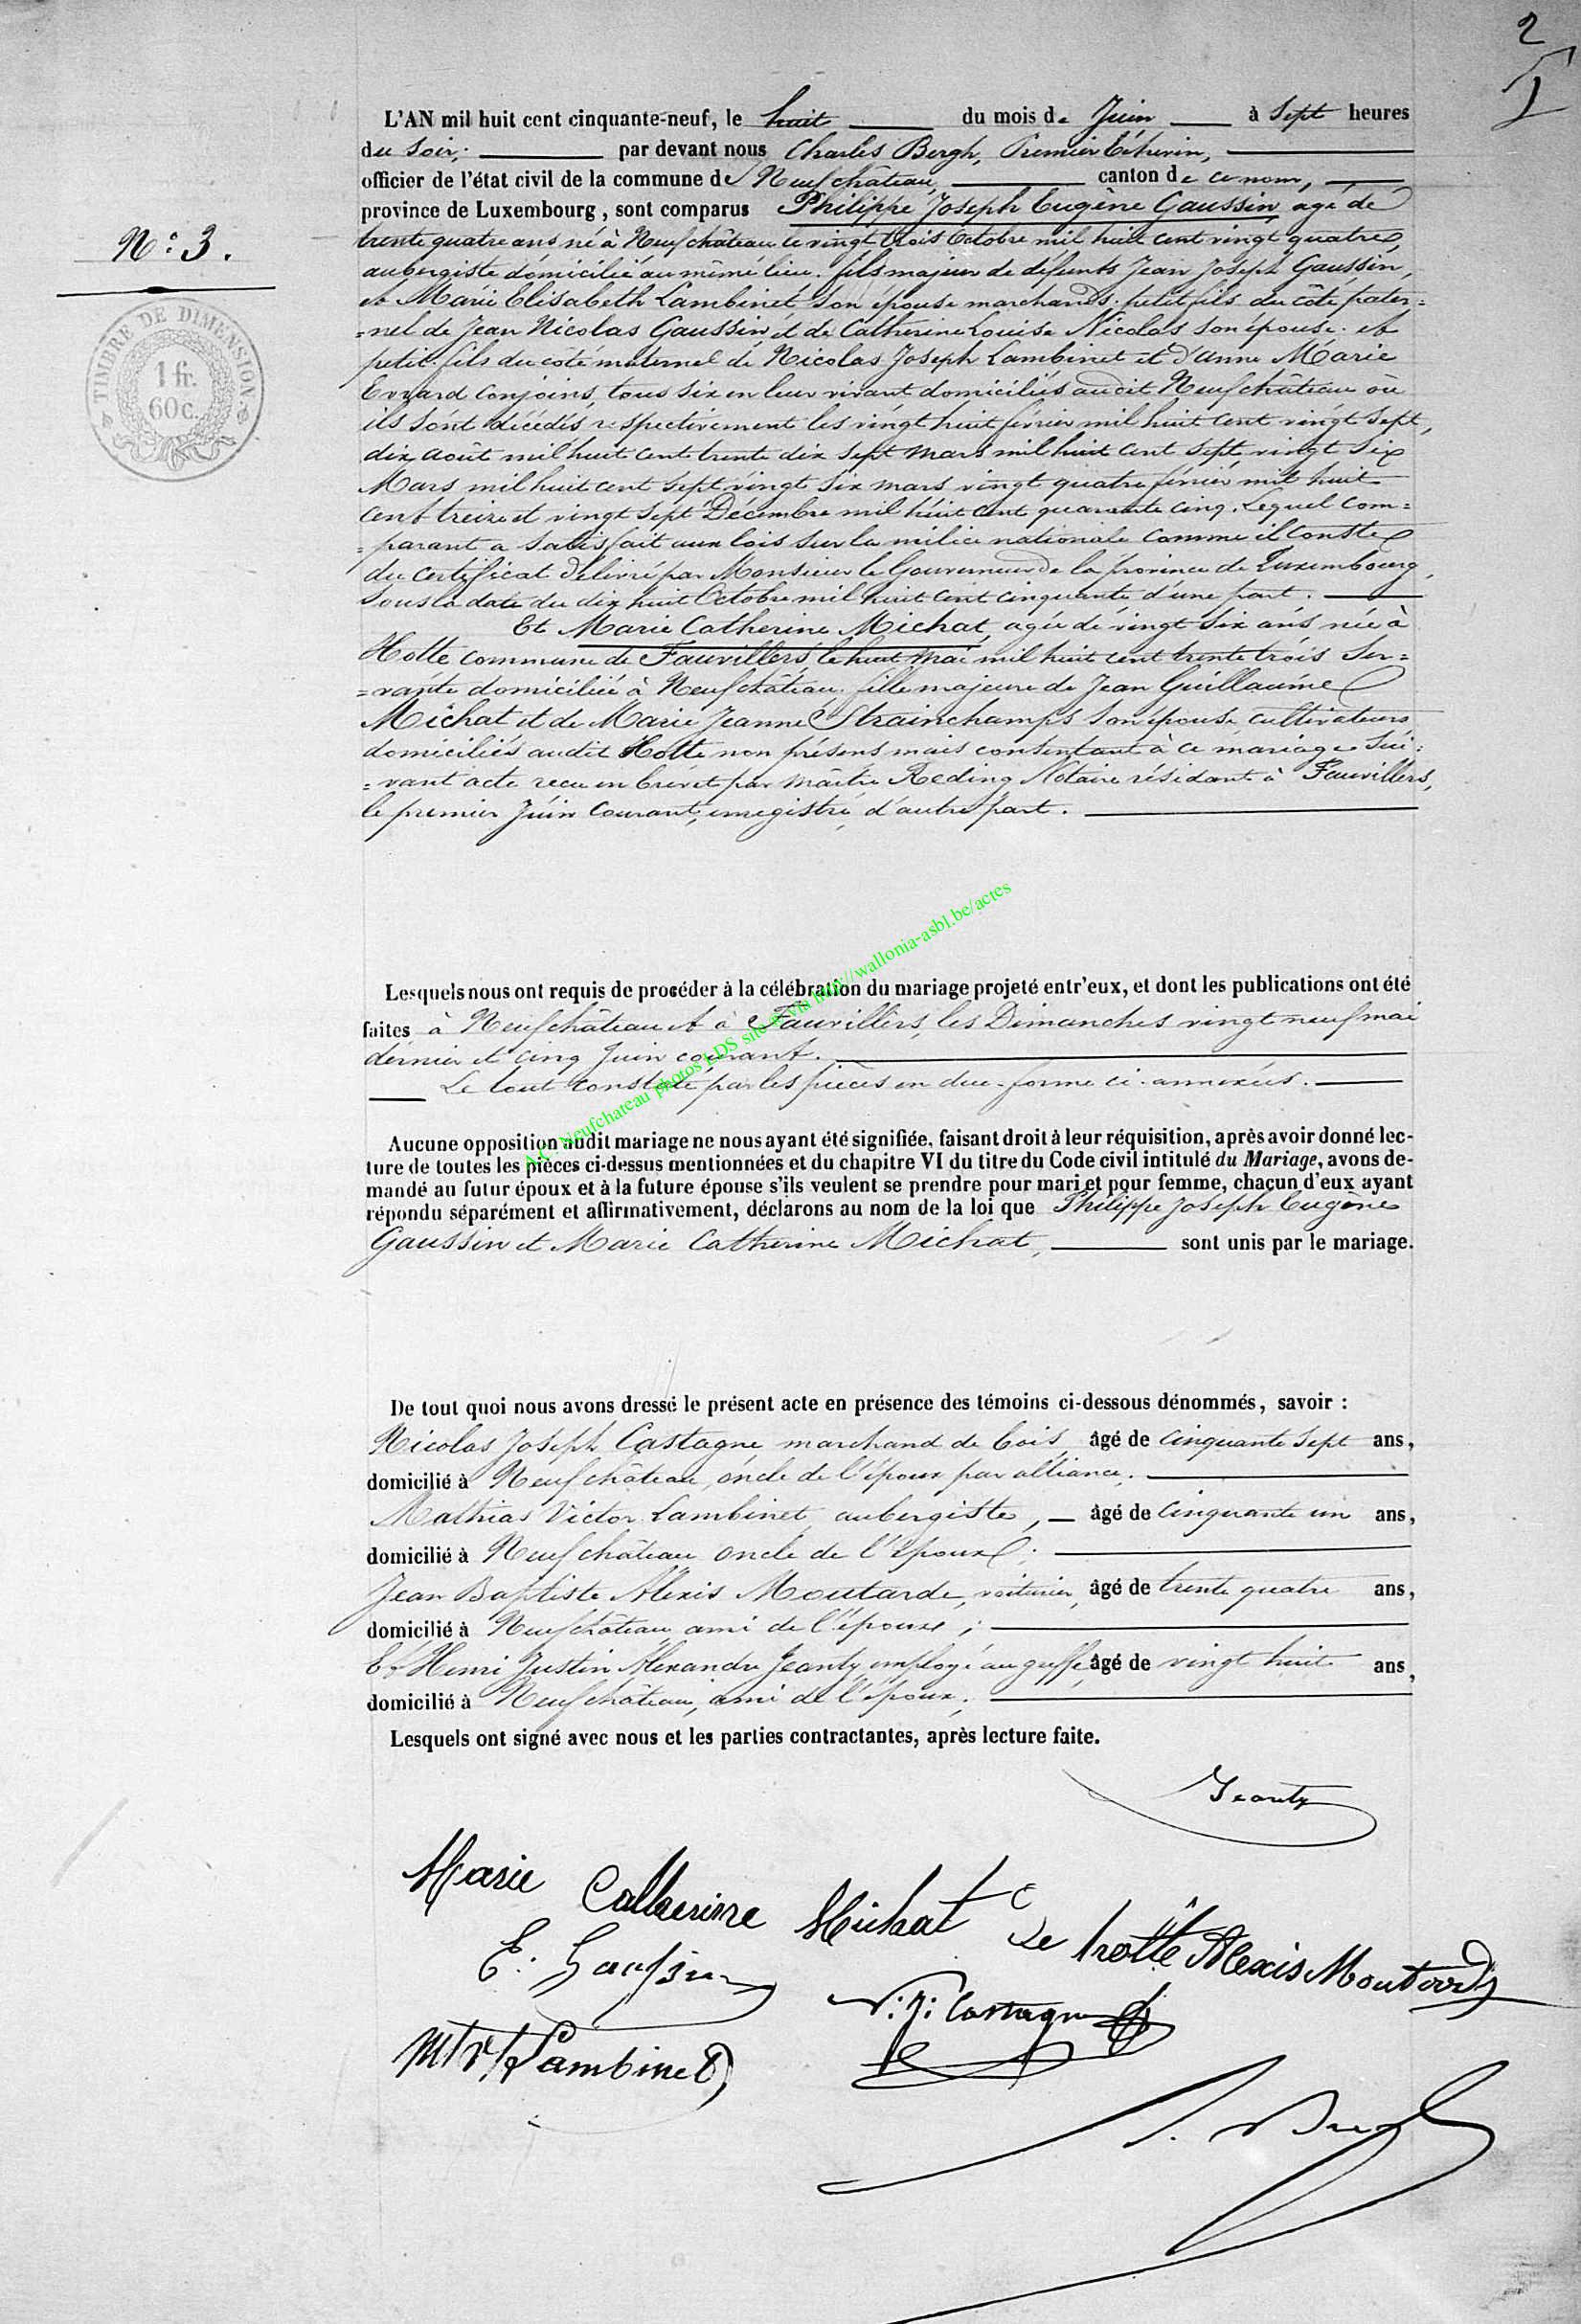 2
1
L'AN mil huit cent cinquante-neuf, le huit du mois de Juin à Sept heures
du Soir; par devant nous Charles Bergh, Premier Echevin,
officier de l'état civil de la commune de Neufchâteau, canton de ce nom,
province de Luxembourg, sont comparus Philippe Joseph Eugène Gaussin, agé de
N.° 3.
trente quatre ans, né à Neufchâteau le vingt trois Octobre mil huit cent vingt quatre,
aubergiste domicilié au même lieu. fils majeur de défunts Jean Joseph Gaussin,
et Marie Elisabeth Lambinet son épouse marchands. petit fils du côté pater=
=nel de Jean Nicolas Gaussin et de Catherine Louise Nicolas son épouse. et
petit-fils du côté maternel de Nicolas Joseph Lambinet et d'anne Marie
Evrard conjoins, tous six en leur vivant domiciliés audit Neufchâteau où
ils sont décédés respectivement les vingt huit février mil huit cent vingt sept,
dix août mil huit cent trente dix sept mars mil huit cent sept, vingt six
Mars mil huit cent sept vingt six mars vingt quatre février mil huit
cent treize et vingt sept Décembre mil huit cent quarante cinq. Lequel com=
=parant a satisfait aux lois sur la milice nationale comme il conste
du certificat délivré par Monsieur le Gouverneur de la province de Luxembourg,
sous la date du dix huit Octobre mil huit cent cinquante d'une part.
Et Marie Catherine Michat, agée de vingt six ans née à
Hotte commune de Fauvillers, le huit mai mil huit cent trente trois Ser=
=vante domiciliée à Neufchâteau, fille majeure de Jean Guillaume
Michat et de Marie Jeanne Strainchamps son épouse, cultivateurs
domiciliés audit Hotte non présens mais consentant à ce mariage sui=
=vant acte recu en brévet par maître Reding Notaire résidant à Fauvillers,
le premier Juin courant, enregistré, d'autre part.
TIMBRE DE DIMENSION
1 fr.
60 c.
Lesquels nous ont requis de procéder à la célébration du mariage projeté entr'eux, et dont les publications ont été
faites à Neufchâteau et à Fauvillers, les Dimanches vingt neuf mai
dernier et cinq Juin courant.
Le tout constaté par les pièces en due forme ci-annexées.
A.C. Neufchateau photos LDS site vds http://wallonia-asbl.be/actes
Aucune opposition audit mariage ne nous ayant été signifiée, faisant droit à leur réquisition, après avoir donné lec-
ture de toutes les pièces ci-dessus mentionnées et du chapitre VI du titre du Code civil intitulé du Mariage, avons de-
mandé au futur époux et à la future épouse s'ils veulent se prendre pour mari et pour femme, chacun d'eux ayant
répondu séparément et affirmativement, déclarons au nom de la loi que Philippe Joseph Eugène
Gaussin et Marie Catherine Michat, sont unis par le mariage.
De tout quoi nous avons dressé le présent acte en présence des témoins ci-dessous dénommés, savoir :
Nicolas Joseph Castagne marchand de bois, âgé de cinquante sept ans,
domicilié à Neufchâteau, oncle de l'époux par alliance.
Mathias Victor Lambinet, aubergiste, âgé de cinquante un ans,
domicilié à Neufchâteau oncle de l'époux.
Jean Baptiste Alexis Moutarde, voiturier, âgé de trente quatre ans,
domicilié à Neufchâteau ami de l'époux;
Et Henri Justin Alexandre Jeanty employé au greffe, âgé de vingt huit ans,
domicilié à Neufchâteau, ami de l'époux.
Lesquels ont signé avec nous et les parties contractantes, après lecture faite.
Jeanty
Marie Catherine Michat de hotte Alexis Moutarde
E. Gaussin
N: J: Castagne
M V Lambinet